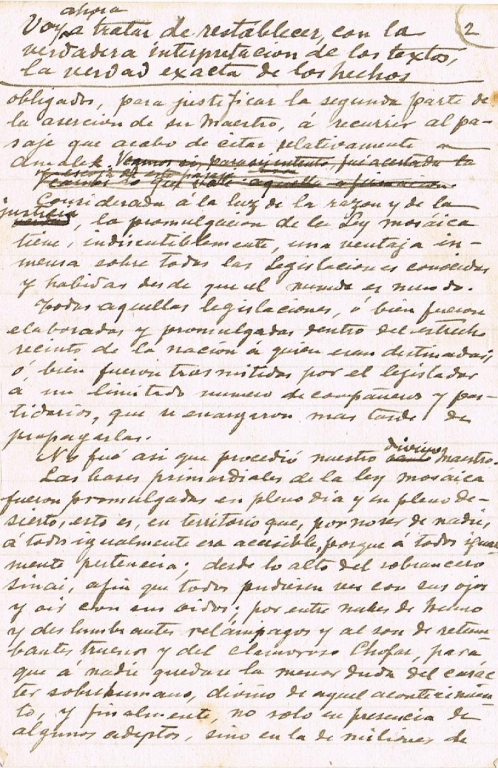 ahora
2
Voy a tratar de restablecer, con la
verdadera interpretacion de los textos,
la verdad exacta de los hechos
obligados, para justificar la segunda parte de
la asercion de su Maestro, á recurrir al pa-
saje que acabo de citar, relativamente a
Amalek.
Considerada á la luz de la razon y de la
justicia, la promulgacion de la Ley mosáica
tiene, indiscutiblemente, una ventaja in-
mensa sobre todas las legislaciones conocidas
y habidas desde que el mundo es mundo.
Todas aquellas legislaciones, ó bien fueron
elaboradas y promulgadas dentro del estrecho
recinto de la nación á quien eran destinadas,
ó bien fueron trasmitidas por el legislador
á un limitado numero de compañeros y par-
tidarios, que se encargaron mas tarde de
propagarlas.
No fué asi que procedió nuestro divino maestro.
Las bases primordiales de la ley mosáica
fueron promulgadas en pleno dia y en pleno de-
sierto, esto es, en territorio que, por no ser de nadie,
á todos igualmente era accesible, porque á todos igual-
mente pertenecia; desde lo alto del sobrancero
Sinai, afin que todos pudiesen ver con sus ojos
y oir con sus oidos; por entre nubes de humo
y deslumbrantes relámpagos y al son de retum-
bantes truenos y del clamoroso Chofar, para
que á nadie quedare la menor duda del carác-
ter sobrehumano, divino de aquel acontecimien-
to, y finalmente, no solo en presencia de
algunos adeptos, sino en la de millones de